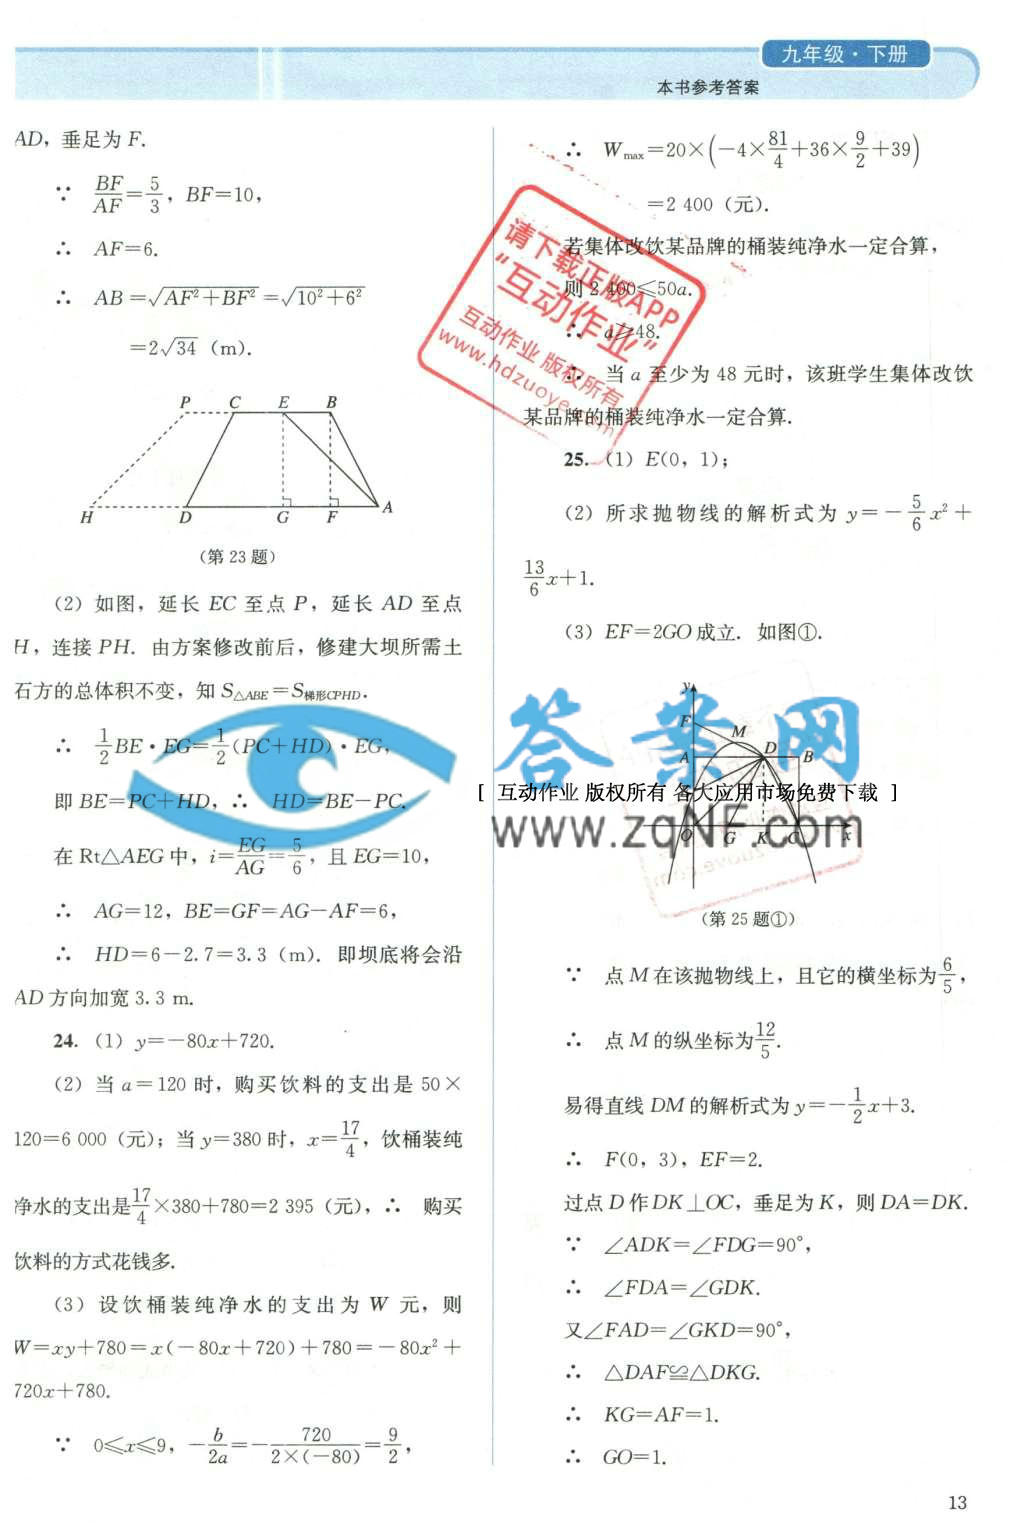 九年级·下册
本书参考答案
AD，垂足为 F.
∵ BF/AF=5/3，BF=10，
∴ AF=6.
∴ AB=√(AF²+BF²)=√(10²+6²)
=2√34 (m).
P C E B
H D G F A
(第 23 题)
(2) 如图，延长 EC 至点 P，延长 AD 至点
H，连接 PH. 由方案修改前后，修建大坝所需土
石方的总体积不变，知 S△ABE=S梯形CPHD.
∴ 1/2 BE·EG=1/2(PC+HD)·EG，
即 BE=PC+HD，∴ HD=BE-PC.
在 Rt△AEG 中，i=EG/AG=5/6，且 EG=10，
∴ AG=12，BE=GF=AG-AF=6，
∴ HD=6-2.7=3.3 (m). 即坝底将会沿
AD 方向加宽 3.3 m.
24. (1) y=-80x+720.
(2) 当 a=120 时，购买饮料的支出是 50×
120=6 000 (元)；当 y=380 时，x=17/4，饮桶装纯
净水的支出是17/4×380+780=2 395 (元)，∴ 购买
饮料的方式花钱多.
(3) 设饮桶装纯净水的支出为 W 元，则
W=xy+780=x(-80x+720)+780=-80x²+
720x+780.
∵ 0≤x≤9，-b/2a=-720/(2×(-80))=9/2，
∴ Wmax=20×(-4×81/4+36×9/2+39)
=2 400 (元).
若集体改饮某品牌的桶装纯净水一定合算，
则 2 400≤50a.
∴ a≥48.
∴ 当 a 至少为 48 元时，该班学生集体改饮
某品牌的桶装纯净水一定合算.
请下载正版APP
“互动作业”
互动作业 版权所有
www.hdzuoye.com
25. (1) E(0，1)；
(2) 所求抛物线的解析式为 y=-5/6 x²+
13/6 x+1.
(3) EF=2GO 成立. 如图①.
y
F
M
A D B
O G K C x
答案网
[ 互动作业 版权所有 各大应用市场免费下载 ]
www.zqNF.com
(第 25 题①)
∵ 点 M 在该抛物线上，且它的横坐标为6/5，
∴ 点 M 的纵坐标为12/5.
易得直线 DM 的解析式为 y=-1/2 x+3.
∴ F(0，3)，EF=2.
过点 D 作 DK⊥OC，垂足为 K，则 DA=DK.
∵ ∠ADK=∠FDG=90°，
∴ ∠FDA=∠GDK.
又∠FAD=∠GKD=90°，
∴ △DAF≌△DKG.
∴ KG=AF=1.
∴ GO=1.
13